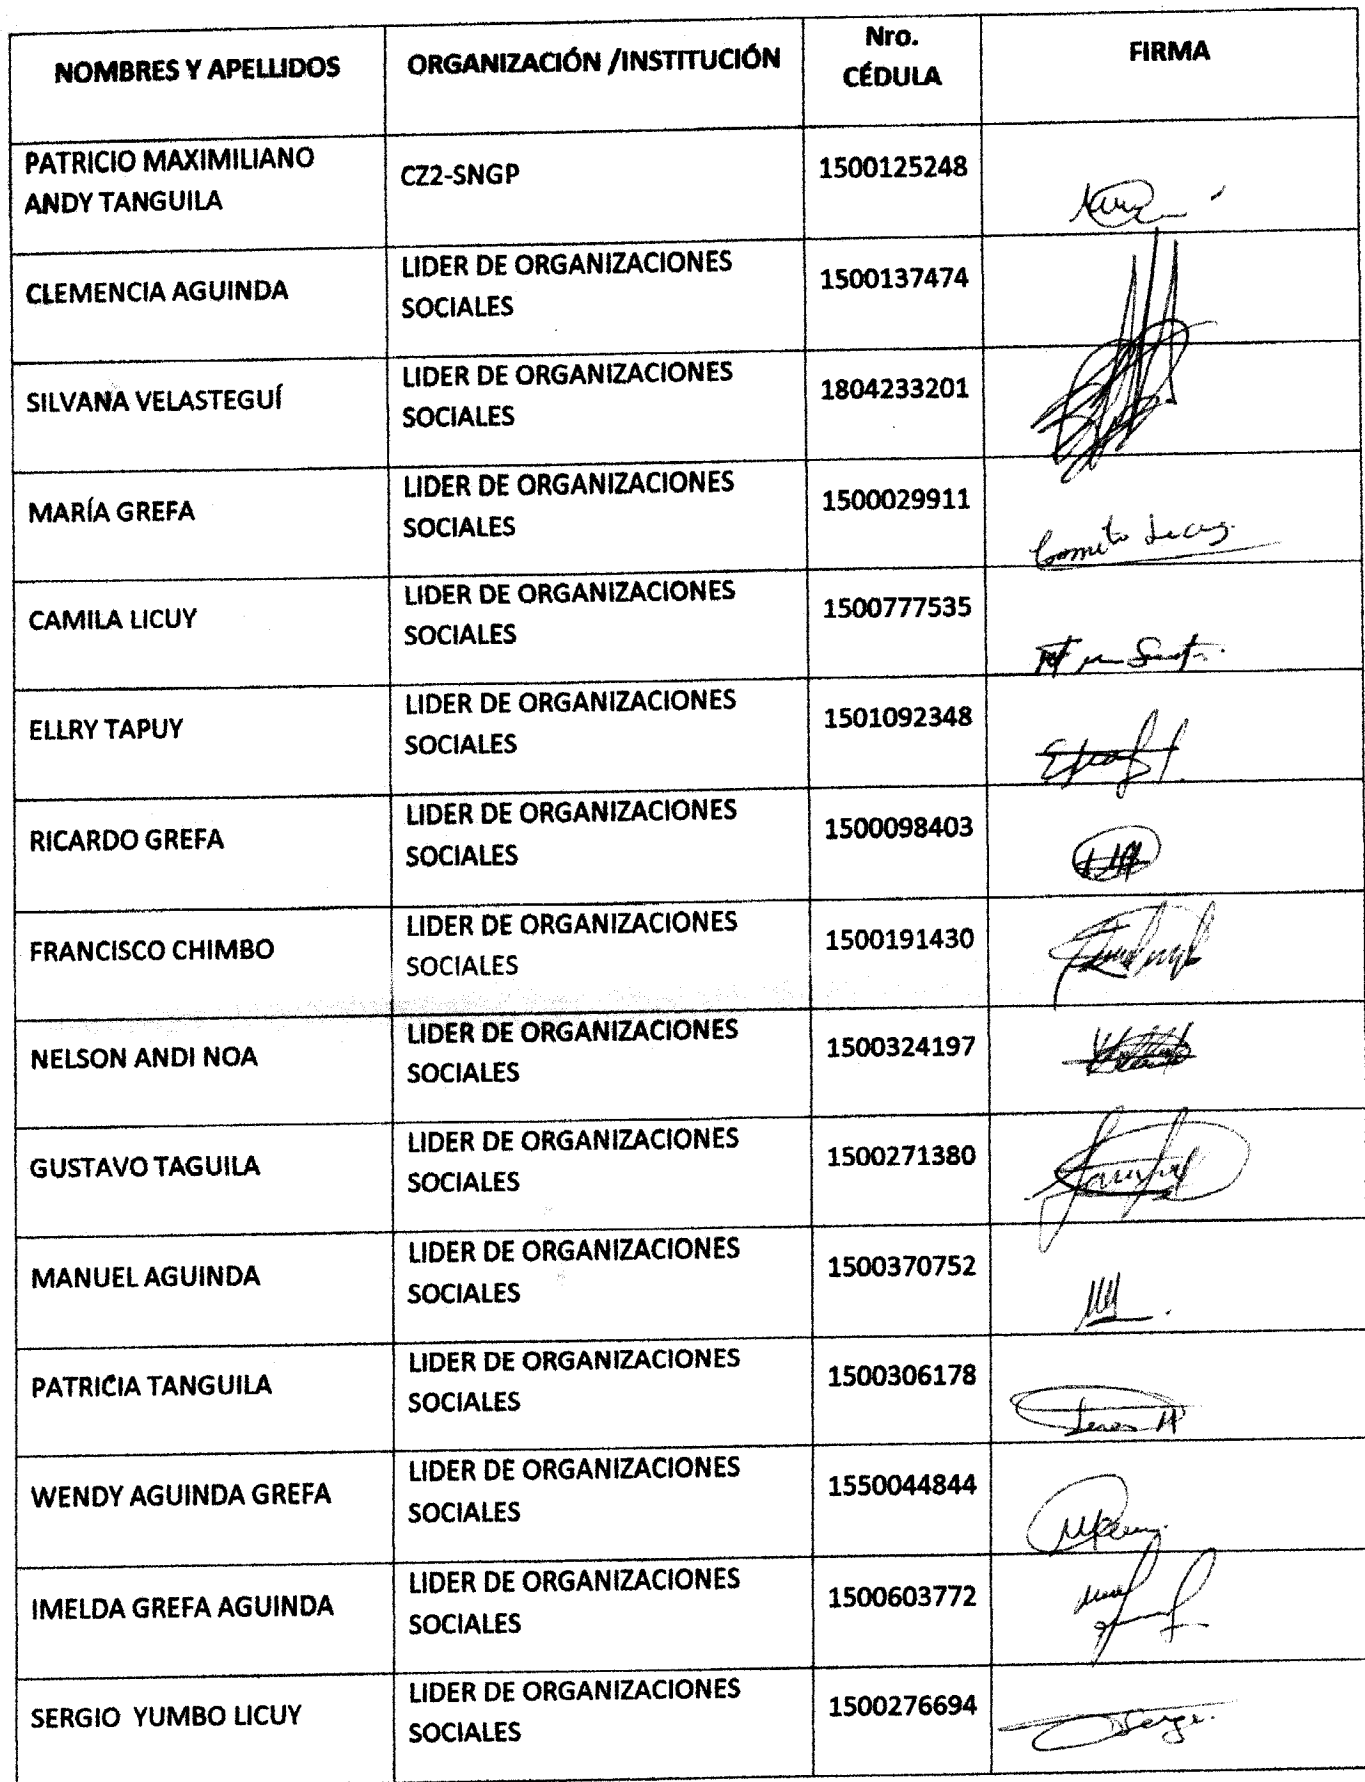 NOMBRES Y APELLIDOS
ORGANIZACIÓN /INSTITUCIÓN
Nro.
CÉDULA
FIRMA
PATRICIO MAXIMILIANO
ANDY TANGUILA
CZ2-SNGP
1500125248
CLEMENCIA AGUINDA
LIDER DE ORGANIZACIONES
SOCIALES
1500137474
SILVANA VELASTEGUÍ
LIDER DE ORGANIZACIONES
SOCIALES
1804233201
MARÍA GREFA
LIDER DE ORGANIZACIONES
SOCIALES
1500029911
CAMILA LICUY
LIDER DE ORGANIZACIONES
SOCIALES
1500777535
ELLRY TAPUY
LIDER DE ORGANIZACIONES
SOCIALES
1501092348
RICARDO GREFA
LIDER DE ORGANIZACIONES
SOCIALES
1500098403
FRANCISCO CHIMBO
LIDER DE ORGANIZACIONES
SOCIALES
1500191430
NELSON ANDI NOA
LIDER DE ORGANIZACIONES
SOCIALES
1500324197
GUSTAVO TAGUILA
LIDER DE ORGANIZACIONES
SOCIALES
1500271380
MANUEL AGUINDA
LIDER DE ORGANIZACIONES
SOCIALES
1500370752
PATRICIA TANGUILA
LIDER DE ORGANIZACIONES
SOCIALES
1500306178
WENDY AGUINDA GREFA
LIDER DE ORGANIZACIONES
SOCIALES
1550044844
IMELDA GREFA AGUINDA
LIDER DE ORGANIZACIONES
SOCIALES
1500603772
SERGIO YUMBO LICUY
LIDER DE ORGANIZACIONES
SOCIALES
1500276694